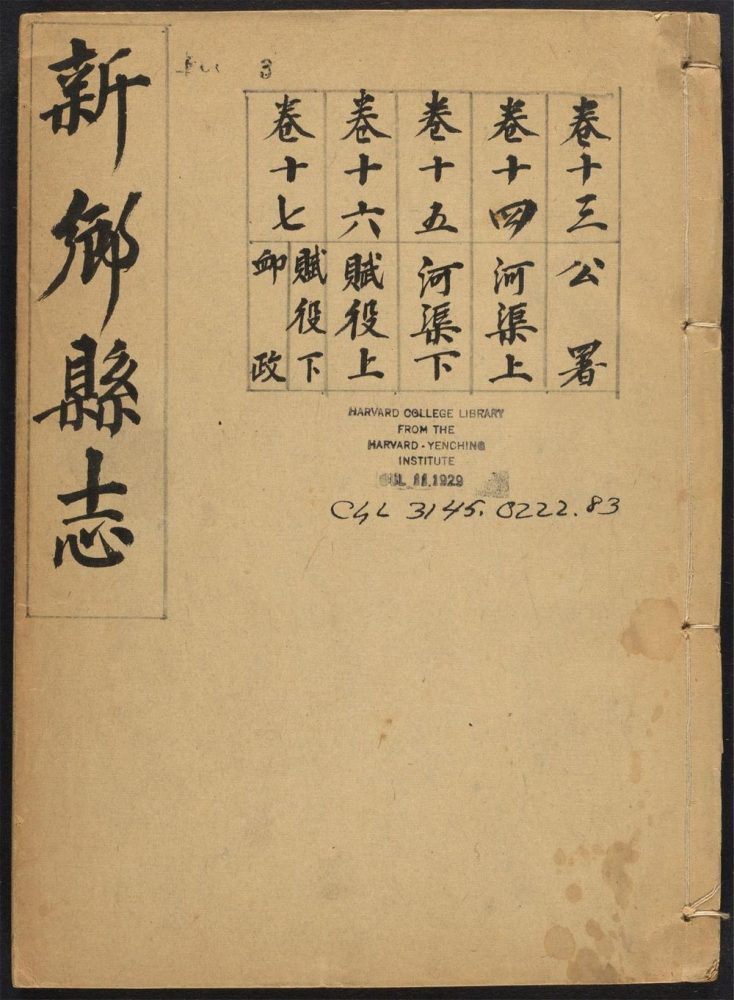 新鄉縣志
3
卷十三
公署
卷十四
河渠上
卷十五
河渠下
卷十六
賦役上
卷十七
賦役下
卹政
HARVARD COLLEGE LIBRARY
FROM THE
HARVARD-YENCHING
INSTITUTE
JUL 11 1929
CHL 3145.0222.83